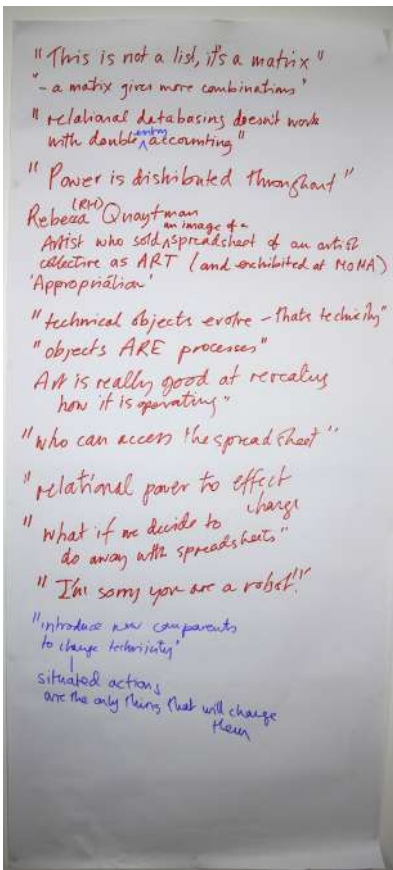 "This is not a list, it's a matrix"
"- a matrix gives more combinations"
"relational databasing doesn't work
with double entry accounting"
"Power is distributed throughout"
Rebecca (RH) Quaytman
Artist who sold an image of a spreadsheet of an artist
collective as ART (and exhibited at MoMA)
'Appropriation'
"technical objects evolve – thats technicity"
"objects ARE processes"
Art is really good at revealing
how it is operating"
"who can access the spreadsheet"
"relational power to effect
change
"what if we decide to
do away with spreadsheets"
"I'm sorry you are a robot!"
"introduce new components
to change technicity"
situated actions
are the only thing that will change
them